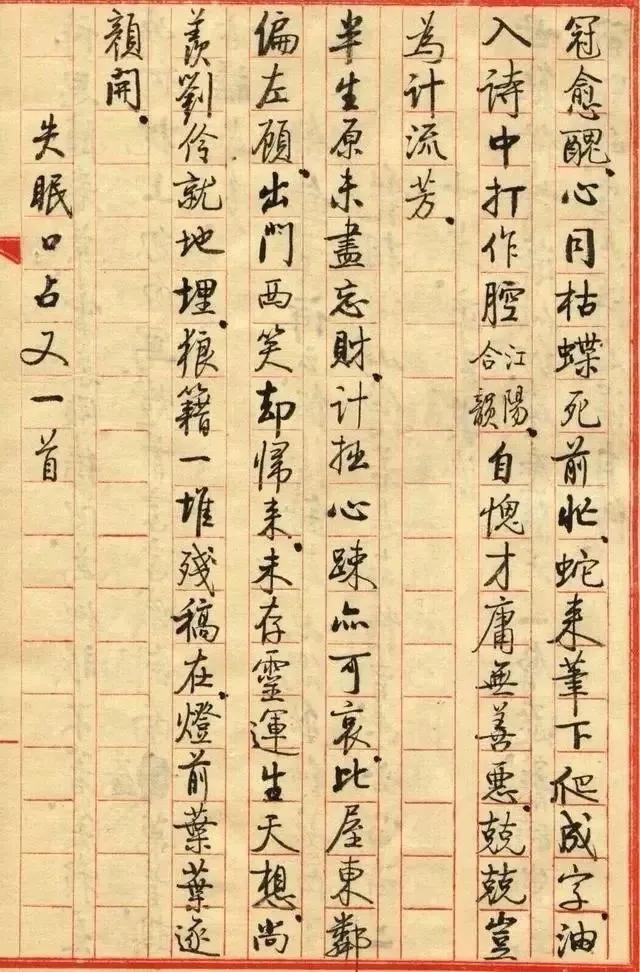 冠愈醜。心同枯蝶死前忙。蛇来筆下爬成字。油
入詩中打作腔江陽合韻。自愧才庸無善惡。兢兢豈
為計流芳。
半生原未盡忘財。計拙心疎亦可哀。比屋東鄰
偏左顧。出門西笑却歸来。未存靈運生天想。尚
羨劉伶就地埋。狼籍一堆殘稿在。燈前葉葉逐
顏開。
失眠口占又一首